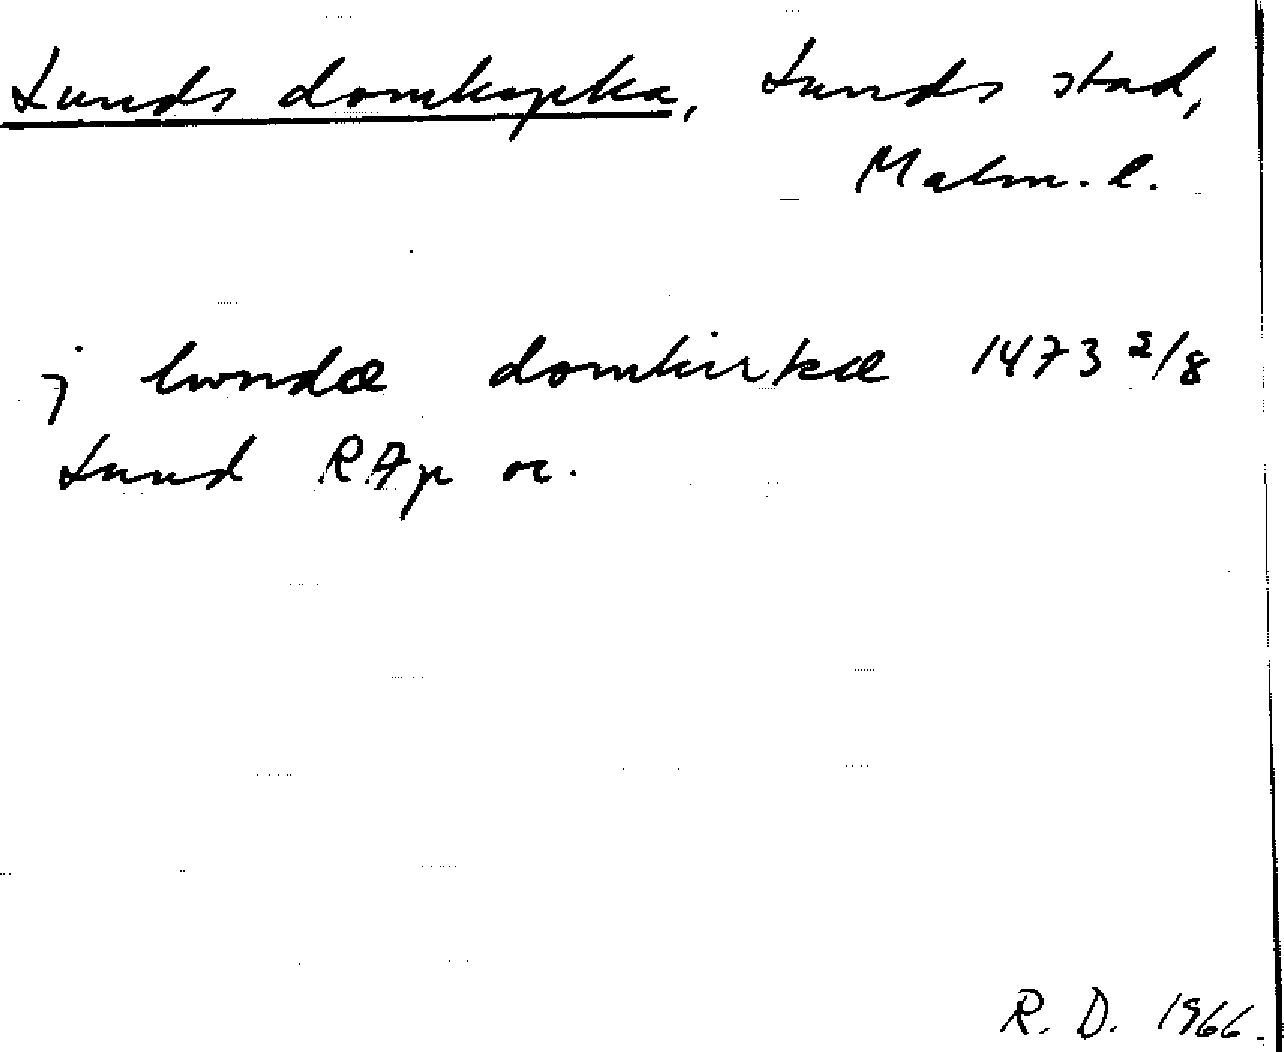 Lunds domkyrka, Lunds stad,
Malm. l.
j lwndæ domkirkæ 1473 2/8
Lund RAp or.
R. D. 1966.